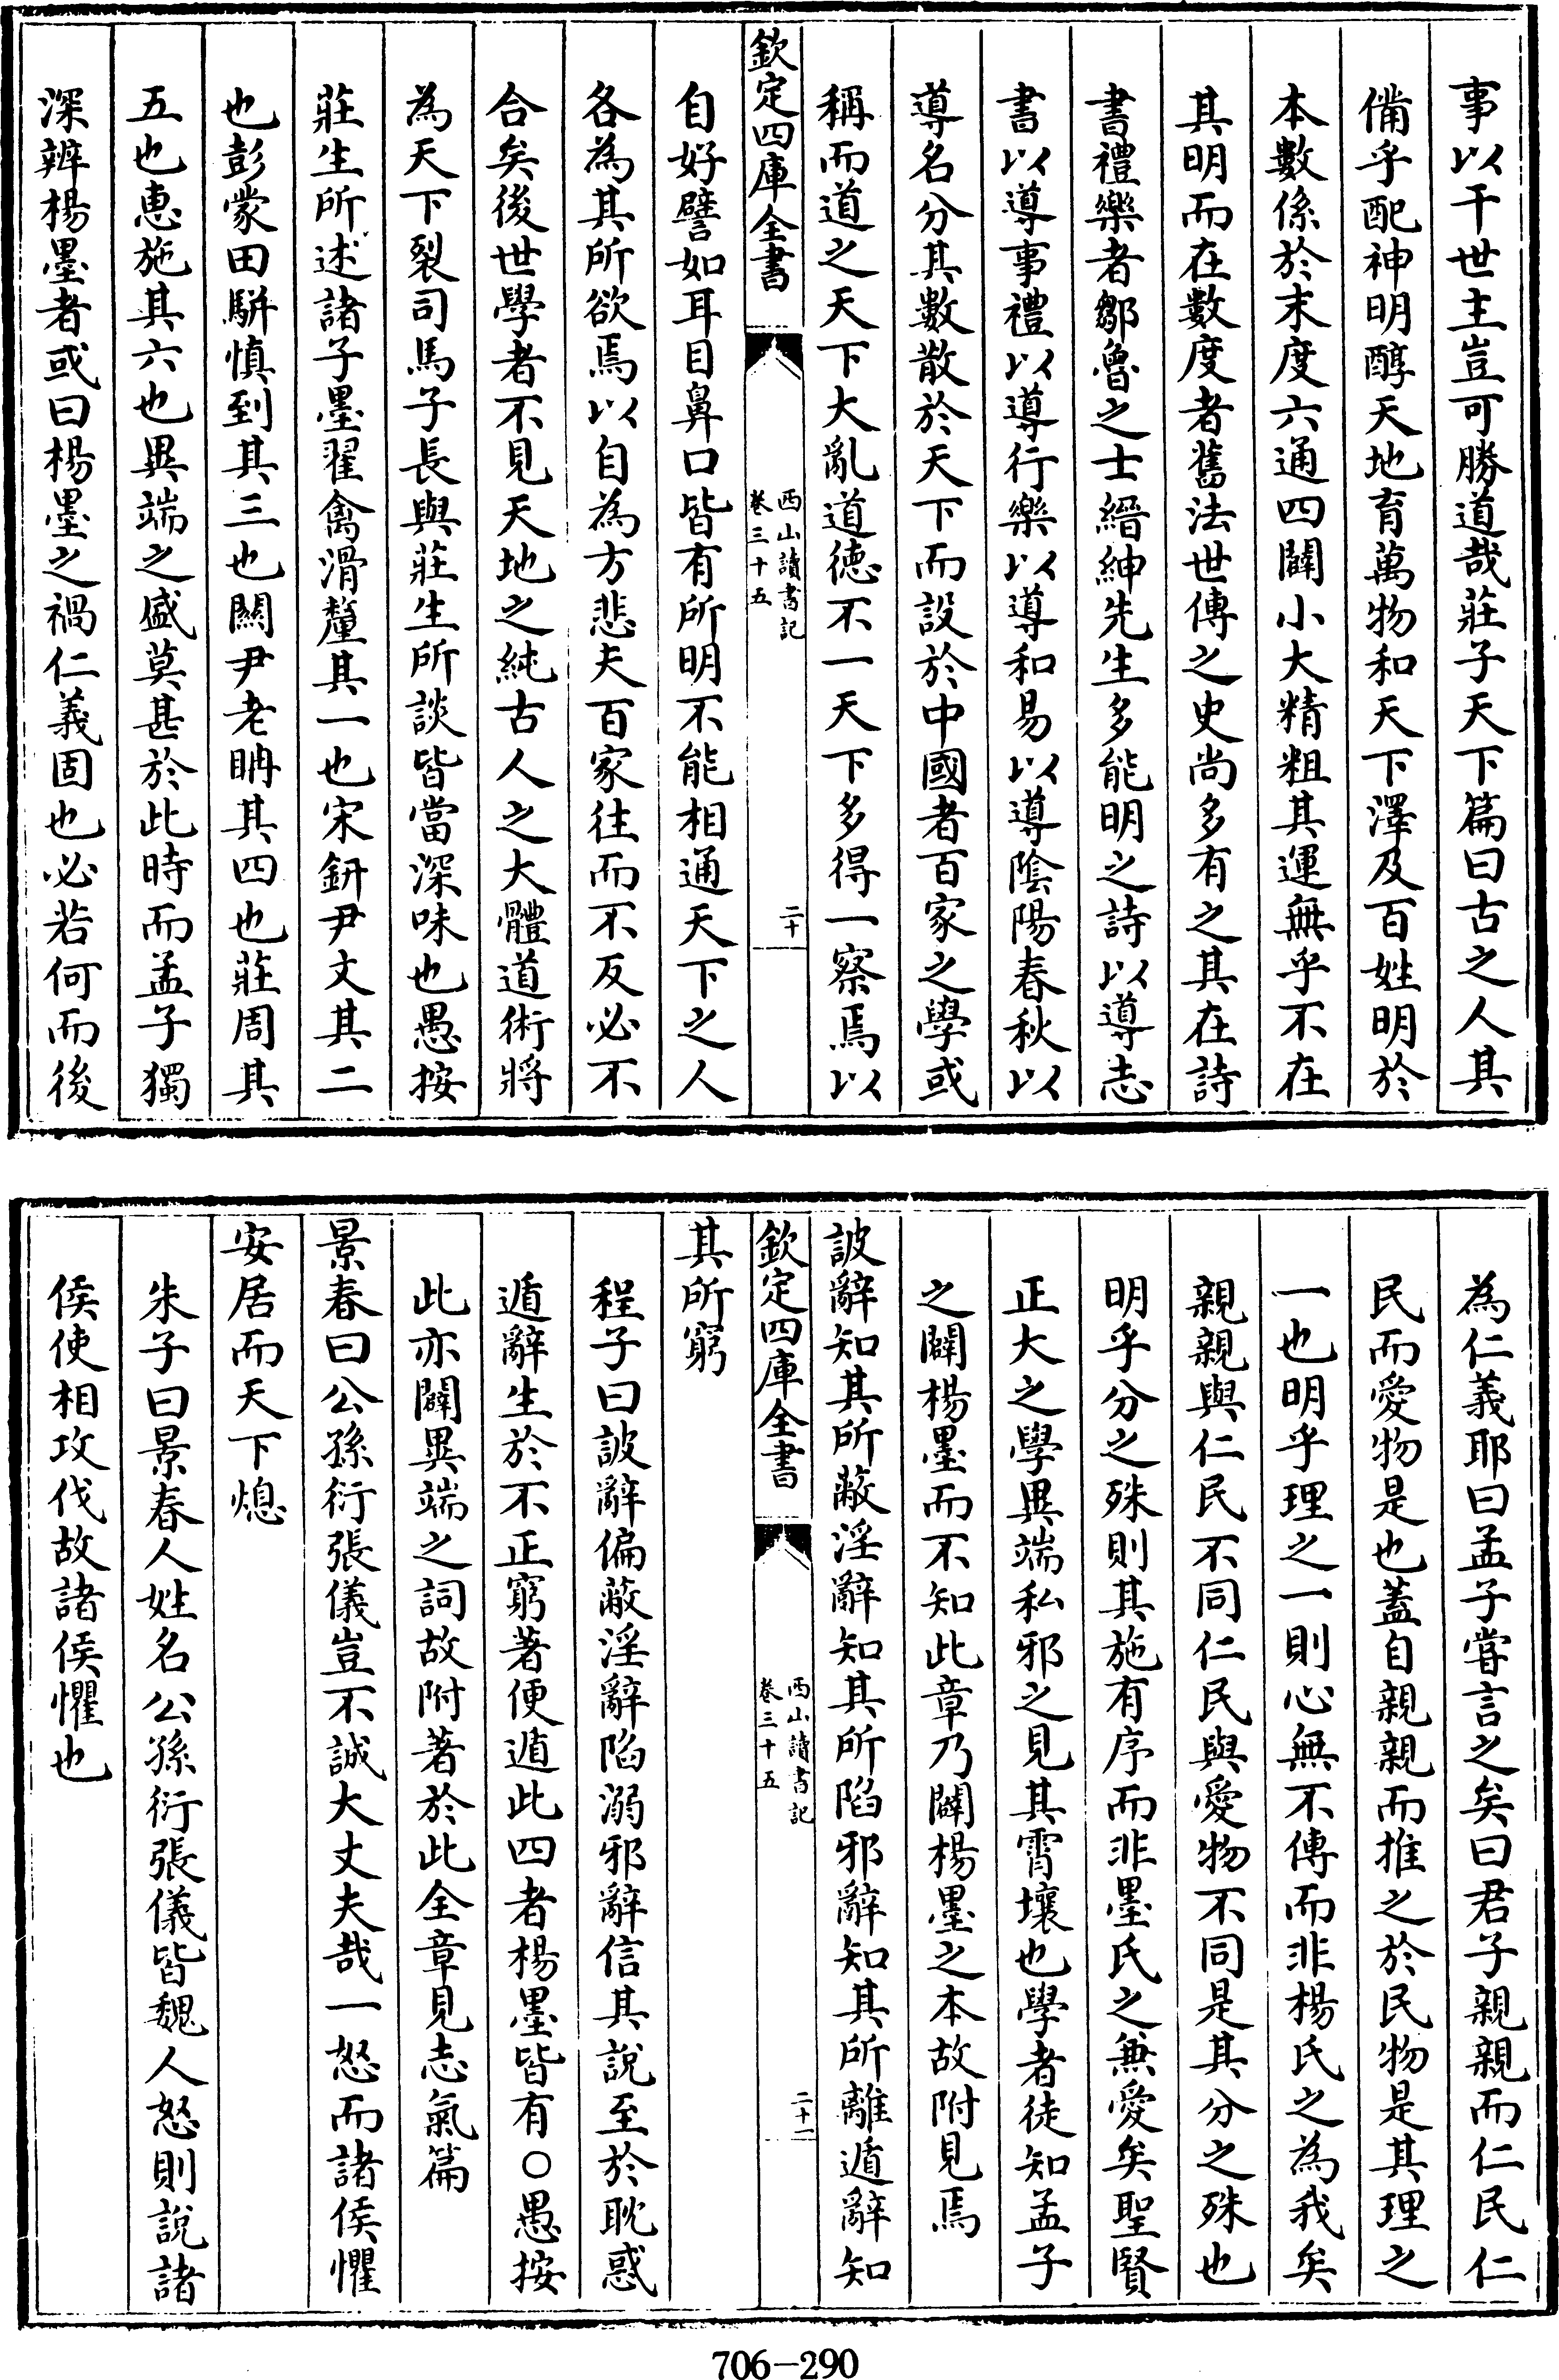 事以干世主豈可勝道哉莊子天下篇曰古之人其
備乎配神明醇天地育萬物和天下澤及百姓明於
本數係於末度六通四闢小大精粗其運無乎不在
其明而在數度者舊法世傳之史尚多有之其在詩
書禮樂者鄒魯之士縉紳先生多能明之詩以導志
書以導事禮以導行樂以導和易以導陰陽春秋以
導名分其數散於天下而設於中國者百家之學或
稱而道之天下大亂道德不一天下多得一察焉以
欽定四庫全書
西山讀書記
卷三十五
二十
自好譬如耳目鼻口皆有所明不能相通天下之人
各為其所欲焉以自為方悲夫百家往而不反必不
合矣後世學者不見天地之純古人之大體道術將
為天下裂司馬子長與莊生所談皆當深味也愚按
莊生所述諸子墨翟禽滑釐其一也宋鈃尹文其二
也彭蒙田駢慎到其三也關尹老聃其四也莊周其
五也惠施其六也異端之盛莫甚於此時而孟子獨
深辨楊墨者或曰楊墨之禍仁義固也必若何而後
為仁義耶曰孟子嘗言之矣曰君子親親而仁民仁
民而愛物是也蓋自親親而推之於民物是其理之
一也明乎理之一則心無不傳而非楊氏之為我矣
親親與仁民不同仁民與愛物不同是其分之殊也
明乎分之殊則其施有序而非墨氏之兼愛矣聖賢
正大之學異端私邪之見其霄壤也學者徒知孟子
之闢楊墨而不知此章乃闢楊墨之本故附見焉
詖辭知其所蔽淫辭知其所陷邪辭知其所離遁辭知
欽定四庫全書
西山讀書記
卷三十五
二十一
其所窮
程子曰詖辭偏蔽淫辭陷溺邪辭信其說至於耽惑
遁辭生於不正窮著便遁此四者楊墨皆有○愚按
此亦闢異端之詞故附著於此全章見志氣篇
景春曰公孫衍張儀豈不誠大丈夫哉一怒而諸侯懼
安居而天下熄
朱子曰景春人姓名公孫衍張儀皆魏人怒則說諸
侯使相攻伐故諸侯懼也
706-290